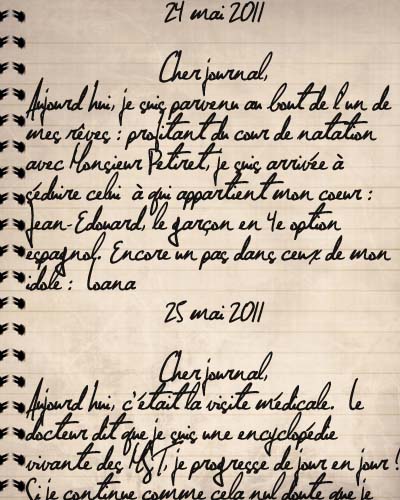 24 mai 2011
Cher journal,
Aujourd'hui, je suis parvenu au bout de l'un de
mes rêves : profitant du cour de natation
avec Monsieur Petiret, je suis arrivée à
séduire celui à qui appartient mon coeur :
Jean-Edouard, le garçon en 4e option
espagnol. Encore un pas dans ceux de mon
idole : Loana
25 mai 2011
Cher journal,
Aujourd'hui, c'était la visite médicale. Le
docteur dit que je suis une encyclopédie
vivante des MST, je progresse de jour en jour !
Si je continue comme cela nul doute que je